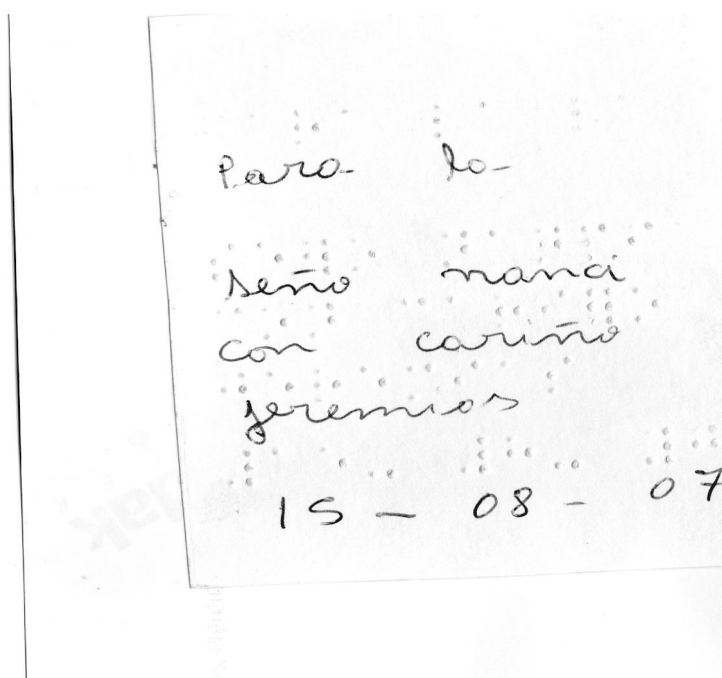 Para la
seño nanci
con cariño
jeremias
15 - 08 - 07